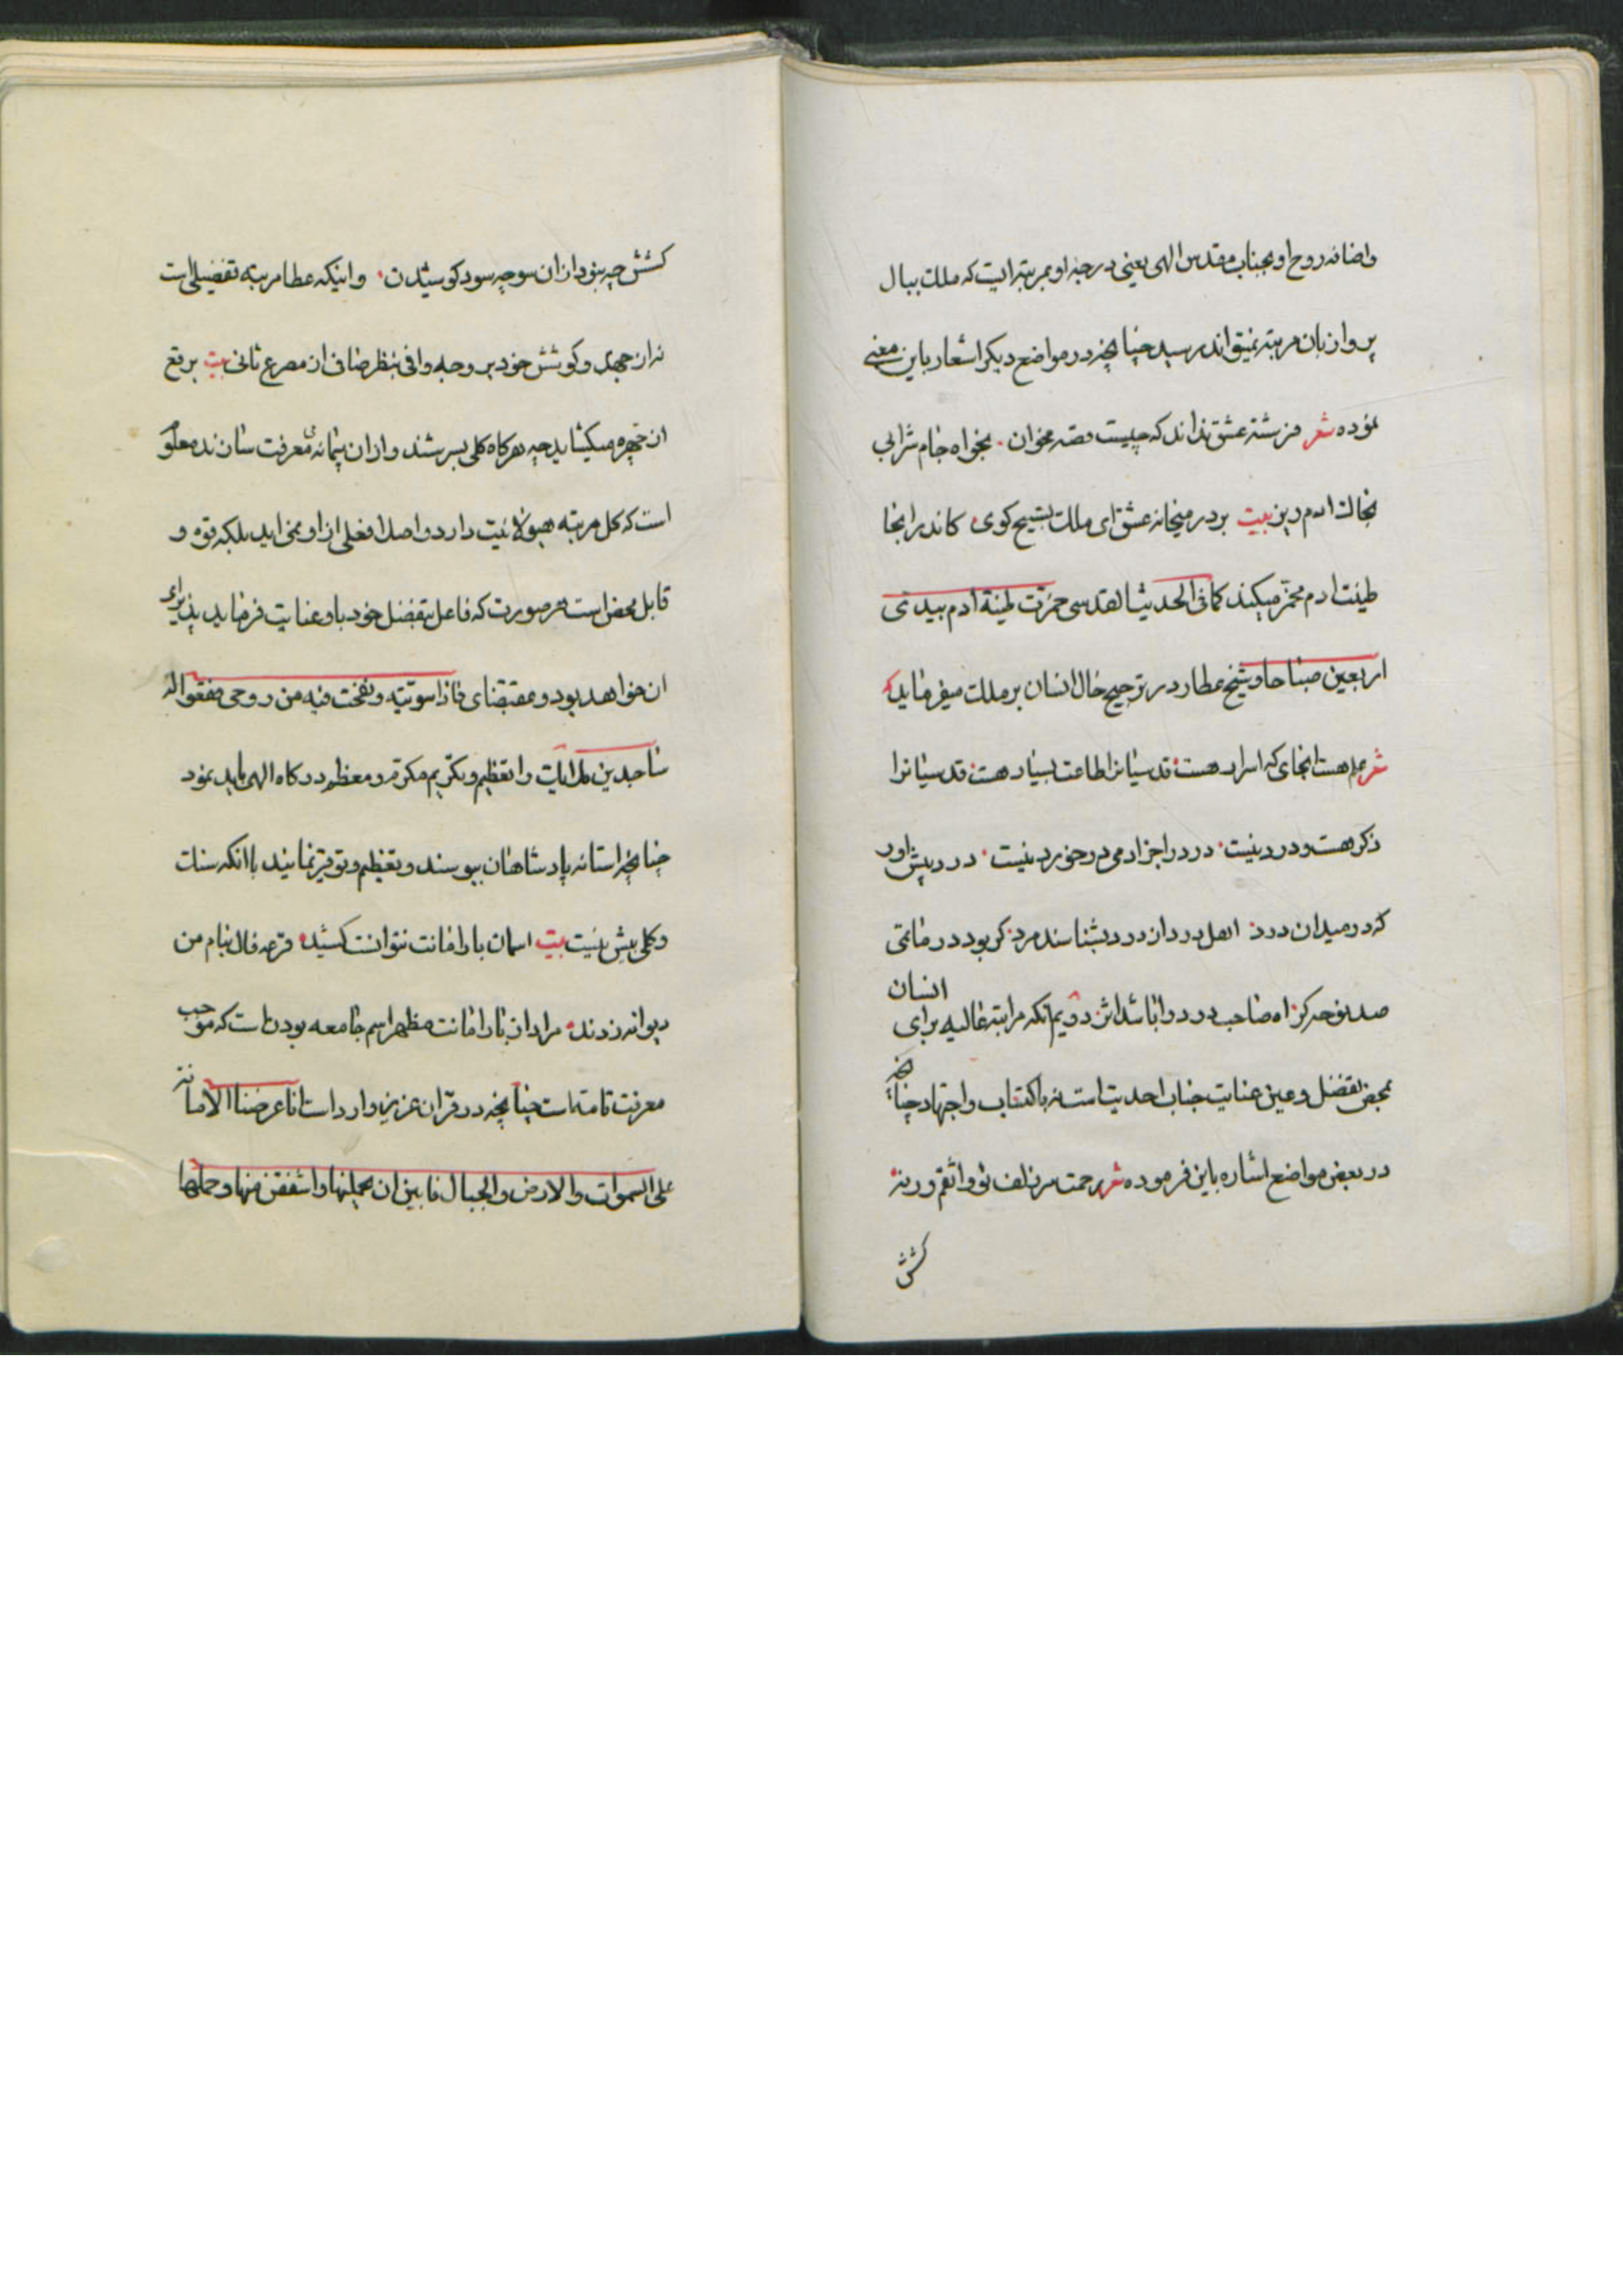 واضافه روح او بجناب مقدس الهی یعنی درجه او بمرتبه ایست که ملک ببال
پرواز بان مرتبه نمیتواند رسید چنانچه در مواضع دیکر اشعار باین معنی
نموده شعر فرشته عشق نداند که چیست قصه مخوان بخواه جام شرابی
بخاک ادم ریز بیت بر در میخانه عشق ای ملک تسبیح کوی کاندر انجا
طینت ادم مخمر میکنند کما فی الحدیث القدسی خمرت طینة ادم بیدی
اربعین صباحا و شیخ عطار در ترجیح حال انسان بر ملک میفرماید
شعر علم هست انجای که اسرار هست قدسیانرا طاعت بسیار هست قدسیانرا
ذکر هست و درد نیست درد را جز ادمی در خورد نیست درد پیش اور
که در میدان درد اهل درد از درد بشناسند مرد کر بود در ماتمی
صد نوحه کر اه صاحب درد را باشد اثر دویم انکه مراتبه عالیه برای انسان
بمحض تفضل و عین عنایت جناب احدیت است نه باکتساب و اجتهاد چنانچه
در بعض مواضع اشاره باین فرموده شعر رحمت سر زلف تو واثقم ورنه
کشش
کشش چه نبود از ان سو چه سود کوشیدن واینکه عطا مرتبه تفضیلی است
نه از جهد و کوشش خود بر وجه وافی بنظر صافی از مصرع ثانی بیت برقع
ان چهره میکشاید چه هرکاه کلی بسرشند و از ان پیمانه معرفت سازند معلو
است که کل مرتبه هیولائیت دارد و اصلا فعلی از او نمی اید بلکه قوه و
قابل محض است هر صورت که فاعل بتفضل خود باو عنایت فرماید پذیرای
ان خواهد بود و بمقتضای فاذا سویته ونفخت فیه من روحی فقعوا له
ساجدین ملائکه را بتعظیم و تکریم مکرم و معظم درکاه الهی باید نمود
چنانچه استانه پادشاهان ببوسند و تعظیم و توقیر نمایند باانکه سنک
و کلی بیش نیست بیت اسمان بار امانت نتوانست کشید قرعه فال بنام من
دیوانه زدند مراد از بار امانت مظهر اسم جامعه بودن است که موجب
معرفت تامه است چنانچه در قران عزیز وارد است انا عرضنا الامانة
علی السموات والارض والجبال فابین ان یحملنها واشفقن منها وحملها